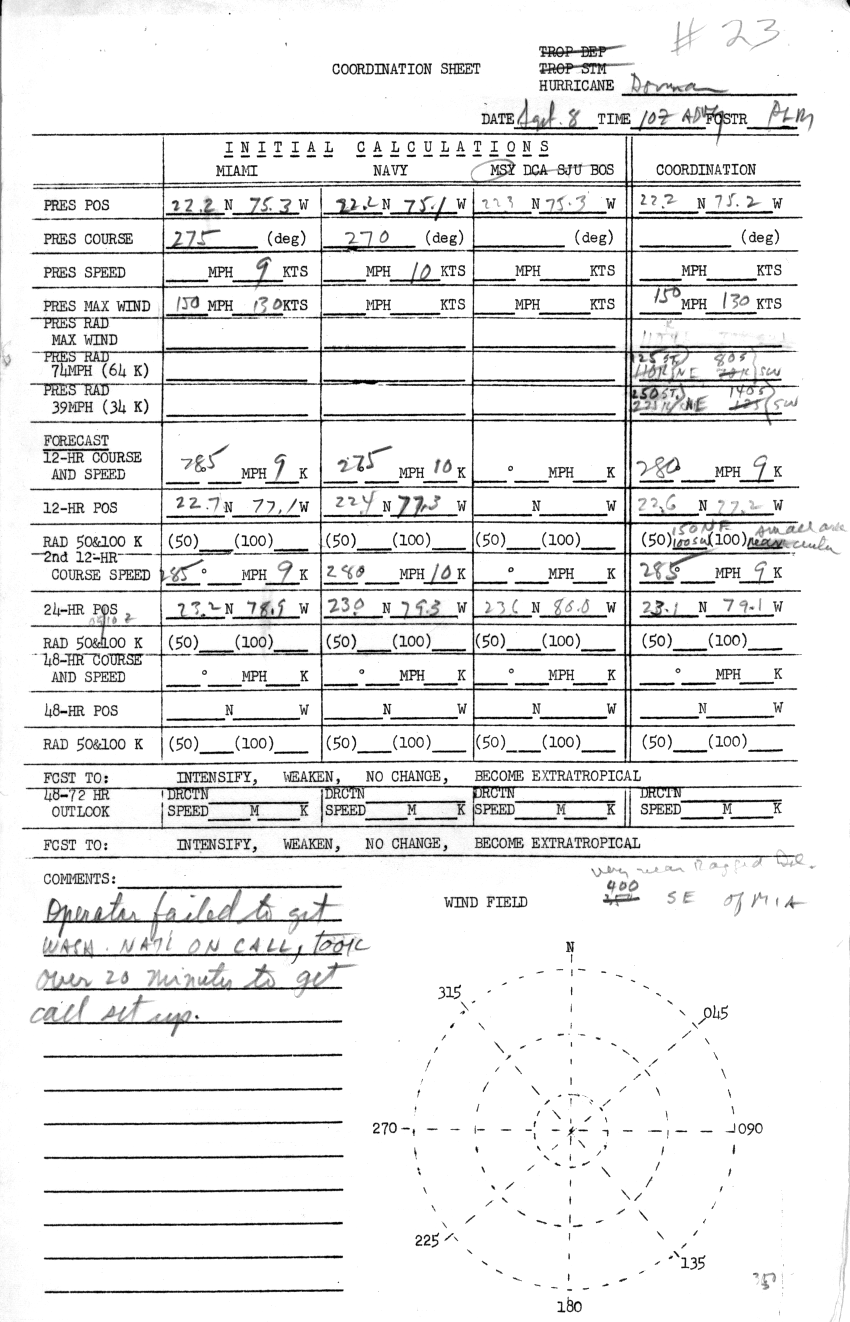 # 23
TROP DEP
COORDINATION SHEET TROP STM
HURRICANE Donna
DATE Sept. 8 TIME 10Z ADVY FCSTR PLM
INITIAL CALCULATIONS
MIAMI NAVY MSY DCA SJU BOS COORDINATION
PRES POS 22.2 N 75.3 W 22.2 N 75.1 W 22.3 N 75.3 W 22.2 N 75.2 W
PRES COURSE 275 (deg) 270 (deg) (deg) (deg)
PRES SPEED MPH 9 KTS MPH 10 KTS MPH KTS MPH KTS
PRES MAX WIND 150 MPH 130 KTS MPH KTS MPH KTS 150 MPH 130 KTS
PRES RAD
MAX WIND
PRES RAD 125 ST. 80S
74MPH (64 K) 110K NE 70K SW
PRES RAD 250 ST. 140S
39MPH (34 K) 225K NE 125 SW
FORECAST
12-HR COURSE
AND SPEED 285 MPH 9 K 275 MPH 10 K ° MPH K 280 MPH 9 K
12-HR POS 22.7 N 77.1 W 22.4 N 77.3 W N W 22.6 N 77.2 W
150 NE small area
RAD 50&100 K (50) (100) (50) (100) (50) (100) (50) 100 SW (100) near center
2nd 12-HR
COURSE SPEED 285° MPH 9 K 280 MPH 10 K ° MPH K 285° MPH 9 K
24-HR POS 23.2 N 78.9 W 23.0 N 79.3 W 23.6 N 80.0 W 23.1 N 79.1 W
RAD 50&100 K (50) (100) (50) (100) (50) (100) (50) (100)
48-HR COURSE
AND SPEED ° MPH K ° MPH K ° MPH K ° MPH K
48-HR POS N W N W N W N W
RAD 50&100 K (50) (100) (50) (100) (50) (100) (50) (100)
FCST TO: INTENSIFY, WEAKEN, NO CHANGE, BECOME EXTRATROPICAL
48-72 HR DRCTN DRCTN DRCTN DRCTN
OUTLOOK SPEED M K SPEED M K SPEED M K SPEED M K
FCST TO: INTENSIFY, WEAKEN, NO CHANGE, BECOME EXTRATROPICAL
very near Ragged Isl.
COMMENTS: 400
WIND FIELD SE of MIA
Operator failed to get
WASH. NAT'L ON CALL, TOOK
over 20 minutes to get
call set up.
N
315
045
270
090
225
135
180
350